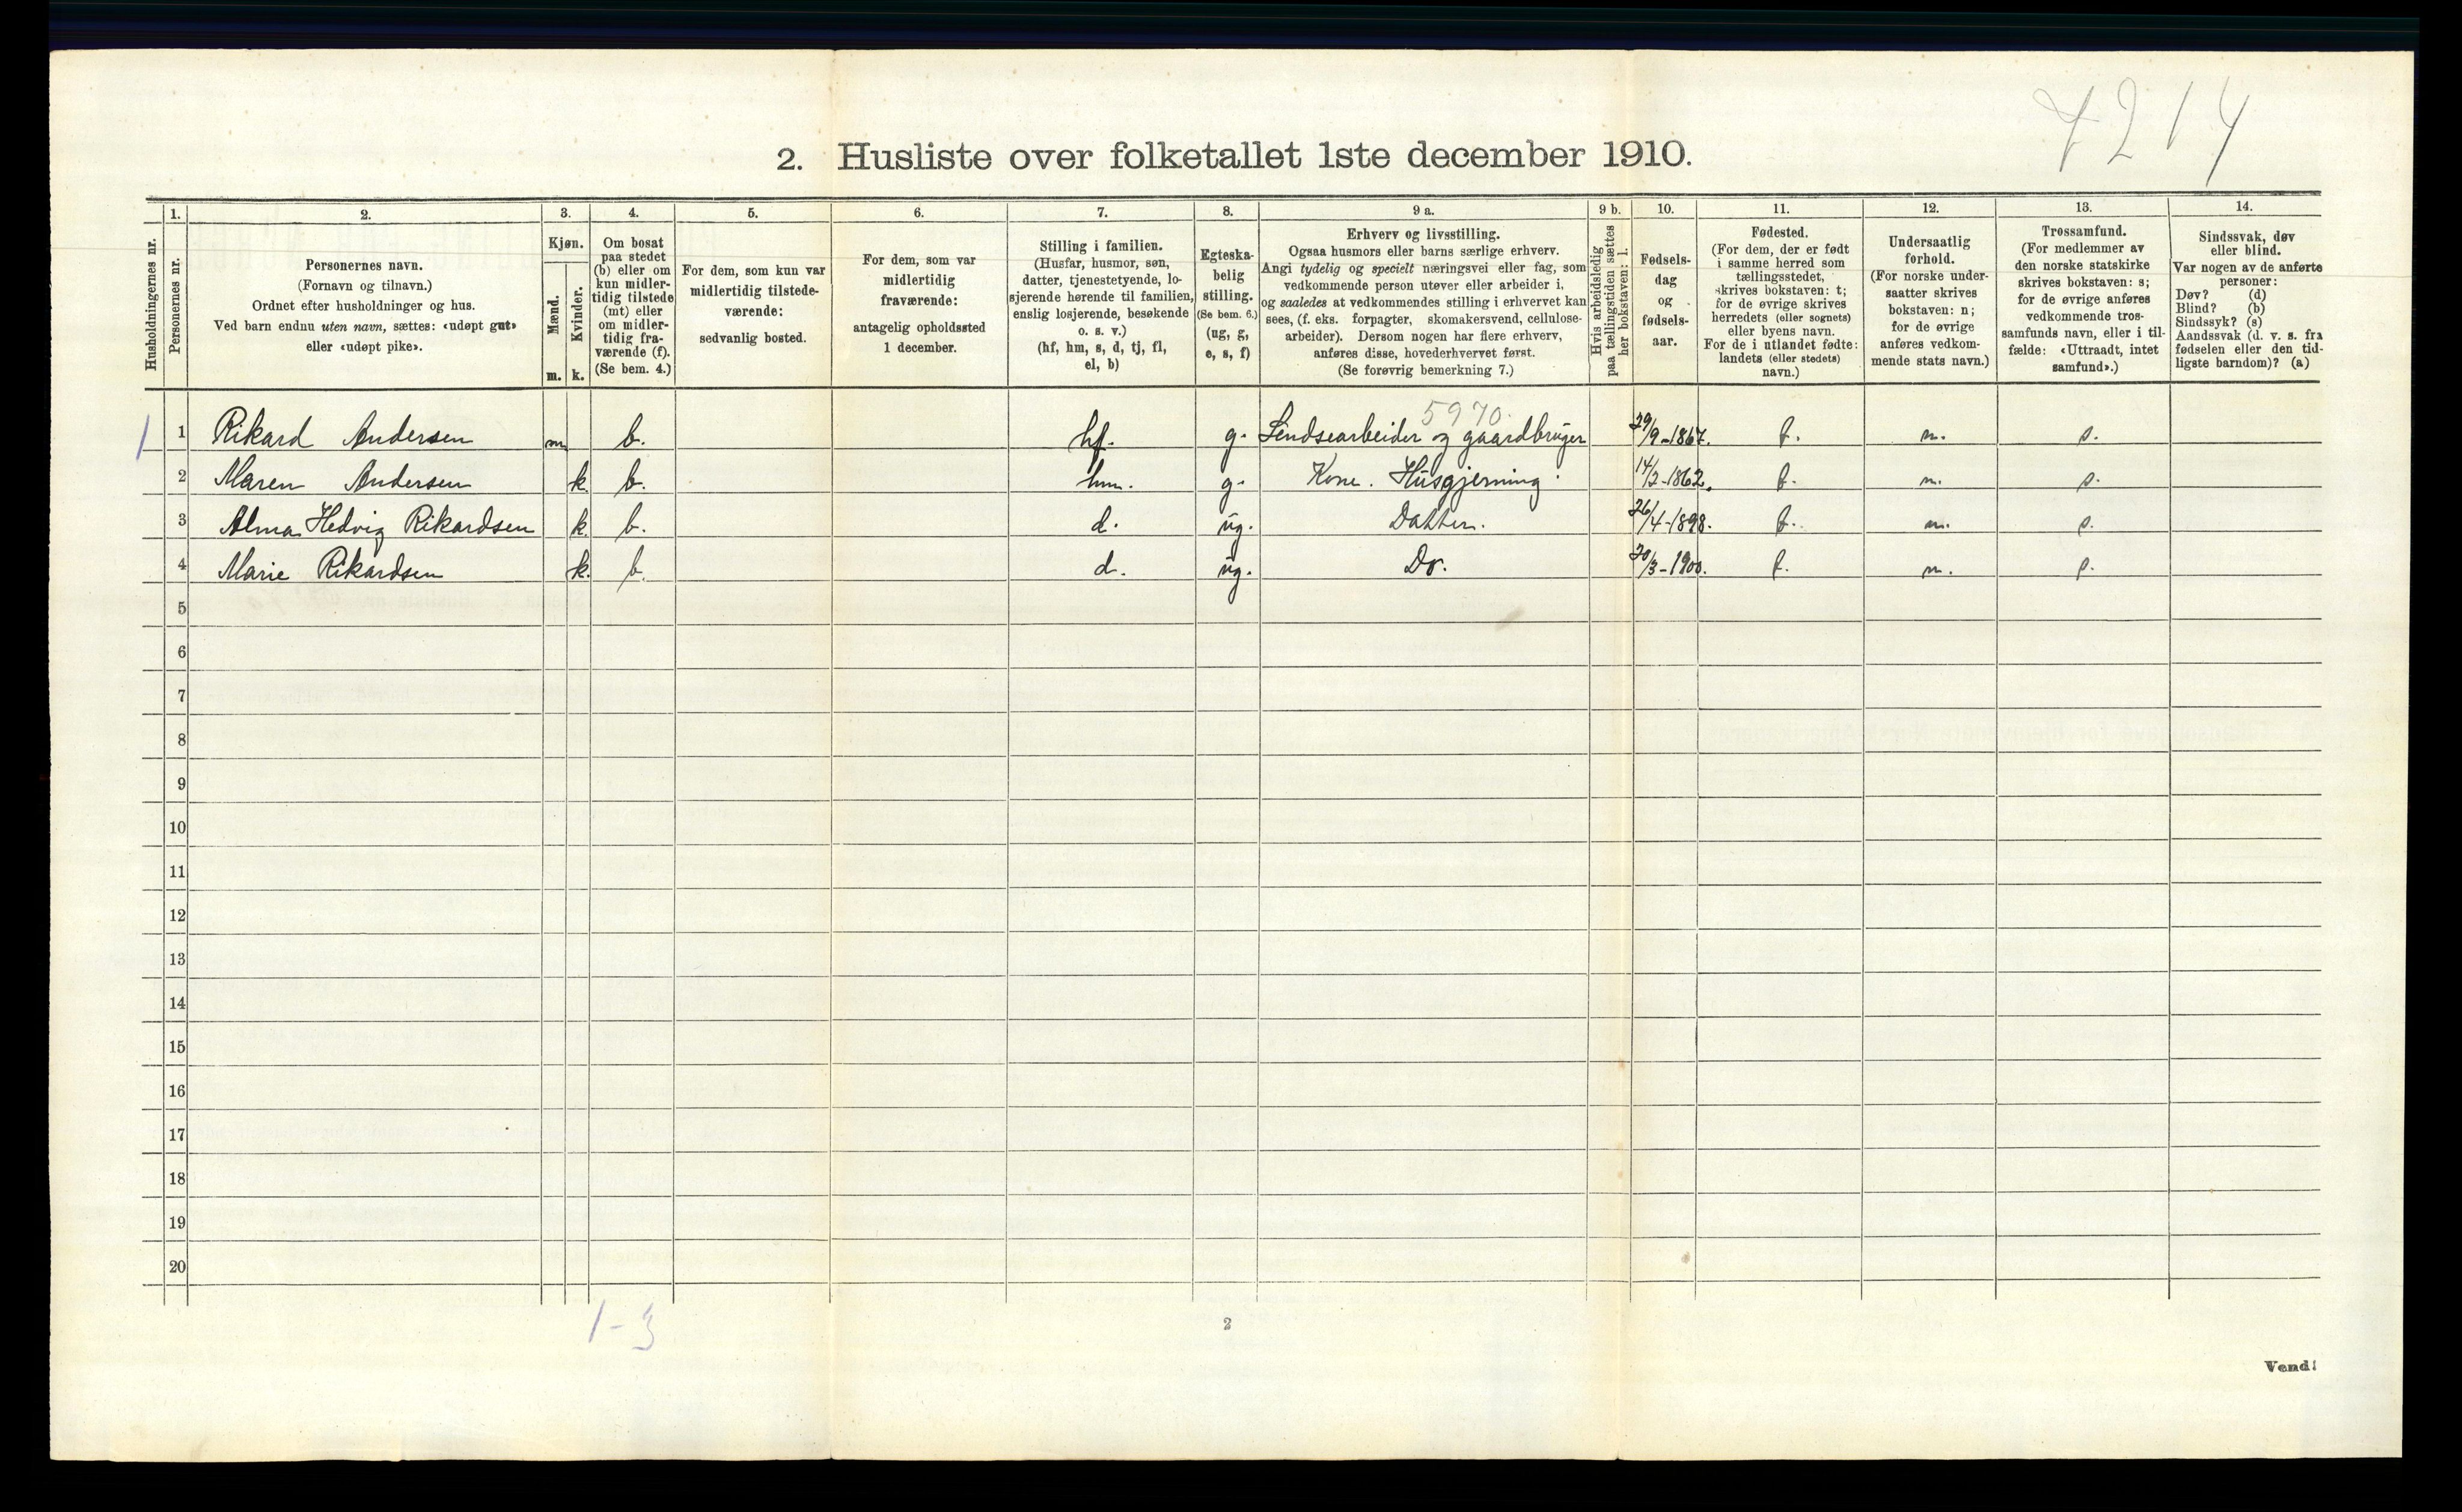 7214
2. Husliste over folketallet 1ste december 1910.
Husholdningernes nr.
1.
Personernes nr.
2.
Personernes navn.
(Fornavn og tilnavn.)
Ordnet efter husholdninger og hus.
Ved barn endnu uten navn, sættes: «udøpt gut»
eller «udøpt pike».
3.
Kjøn.
Mænd.
Kvinder.
m.
k.
4.
Om bosat
paa stedet
(b) eller om
kun midler-
tidig tilstede
(mt) eller
om midler-
tidig fra-
værende (f).
(Se bem. 4.)
5.
For dem, som kun var
midlertidig tilstede-
værende:
sedvanlig bosted.
6.
For dem, som var
midlertidig
fraværende:
antagelig opholdssted
1 december.
7.
Stilling i familien.
(Husfar, husmor, søn,
datter, tjenestetyende, lo-
sjerende hørende til familien,
enslig losjerende, besøkende
o. s. v.)
(hf, hm, s, d, tj, fl,
el, b)
8.
Egteska-
belig
stilling.
(Se bem. 6.)
(ug, g,
e, s, f)
9 a.
Erhverv og livsstilling.
Ogsaa husmors eller barns særlige erhverv.
Angi tydelig og specielt næringsvei eller fag, som
vedkommende person utøver eller arbeider i,
og saaledes at vedkommendes stilling i erhvervet kan
sees, (f. eks. forpagter, skomakersvend, cellulose-
arbeider). Dersom nogen har flere erhverv,
anføres disse, hovederhvervet først.
(Se forøvrig bemerkning 7.)
9 b.
Hvis arbeidsledig
paa tællingstiden sættes
her bokstaven: l.
10.
Fødsels-
dag
og
fødsels-
aar.
11.
Fødested.
(For dem, der er født
i samme herred som
tællingsstedet,
skrives bokstaven: t;
for de øvrige skrives
herredets (eller sognets)
eller byens navn.
For de i utlandet fødte:
landets (eller stedets)
navn.)
12.
Undersaatlig
forhold.
(For norske under-
saatter skrives
bokstaven: n;
for de øvrige
anføres vedkom-
mende stats navn.)
13.
Trossamfund.
(For medlemmer av
den norske statskirke
skrives bokstaven: s;
for de øvrige anføres
vedkommende tros-
samfunds navn, eller i til-
fælde: «Uttraadt, intet
samfund».)
14.
Sindssvak, døv
eller blind.
Var nogen av de anførte
personer:
Døv? (d)
Blind? (b)
Sindssyk? (s)
Aandssvak (d. v. s. fra
fødselen eller den tid-
ligste barndom)? (a)
5970.
1 1 Rikard Andersen m b. hf. g. Lindsearbeider og gaardbruger 29/9-1867. t. n. s.
2 Maren Andersen k. b. hm. g. Kone. Husgjerning. 14/2-1862. t. n. s.
3 Alma Hedvig Rikardsen k. b. d. ug. Datter. 26/4-1898. t. n. s.
4 Marie Rikardsen k. b. d. ug. Do. 20/3-1900. t. n. s.
5
6
7
8
9
10
11
12
13
14
15
16
17
18
19
20
1-3
2
Vend!